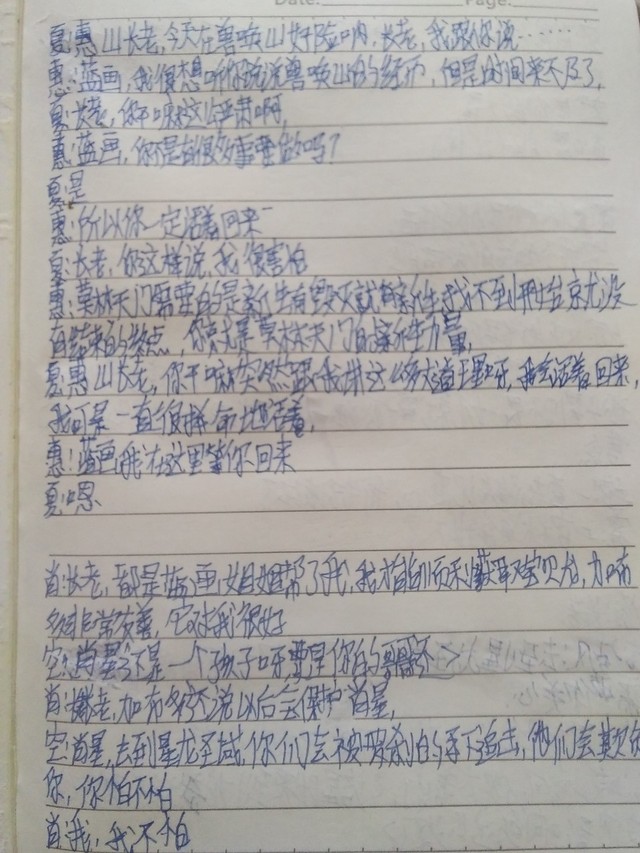 Date: Page:
夏:惠山长老,今天在兽唤山好险呐,长老,我跟你说……
惠:蓝画,我很想听你说说兽唤山的经历,但是时间来不及了,
夏:长老,你干嘛这么严肃啊,
惠:蓝画,你不是有很多事要做的吗?
夏:是
惠:所以你一定活着回来
夏:长老,你这样说,我很害怕
惠:莫林天门需要的是新生有毁灭就有新生,找不到开始,就没
有结束的终点,你就是莫林天门的新生力量,
夏:惠山长老,你干嘛突然跟我讲这么多大道理呀,我会活着回来,
我可是一直很拼命地活着,
惠:蓝画,我在这里等你回来
夏:嗯
肖:长老,都是蓝画姐姐帮了我,我才顺利获取宝贝龙,加布
多非常友善,它对我很好
空:肖星不是一个孩子呀,要是你的哥哥还
肖:长老,加布多还说以后会保护肖星,
空:肖星,去到星龙圣域,你们会被的手下追击,他们会欺负
你,你怕不怕
肖:我,我不怕